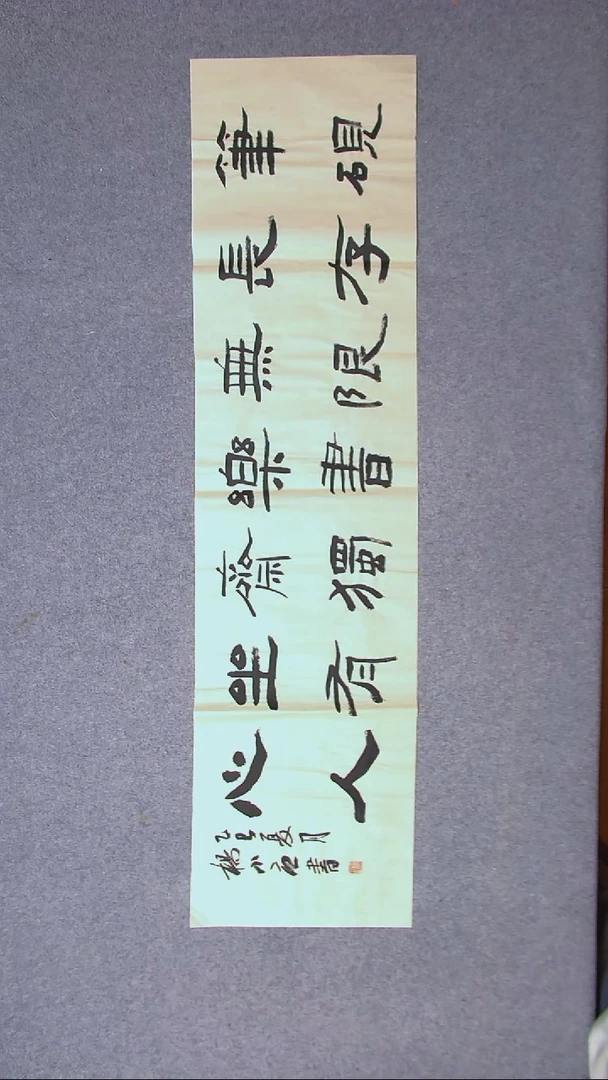 筆硯
長存
無限
樂書
齋獨
坐有
心人
乙巳夏月
楊小書